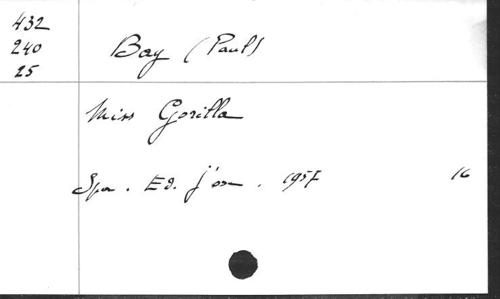 432
240
25
Bay (Paul)
Miss Gorilla
Spa. Ed. j'ose. 1957
16